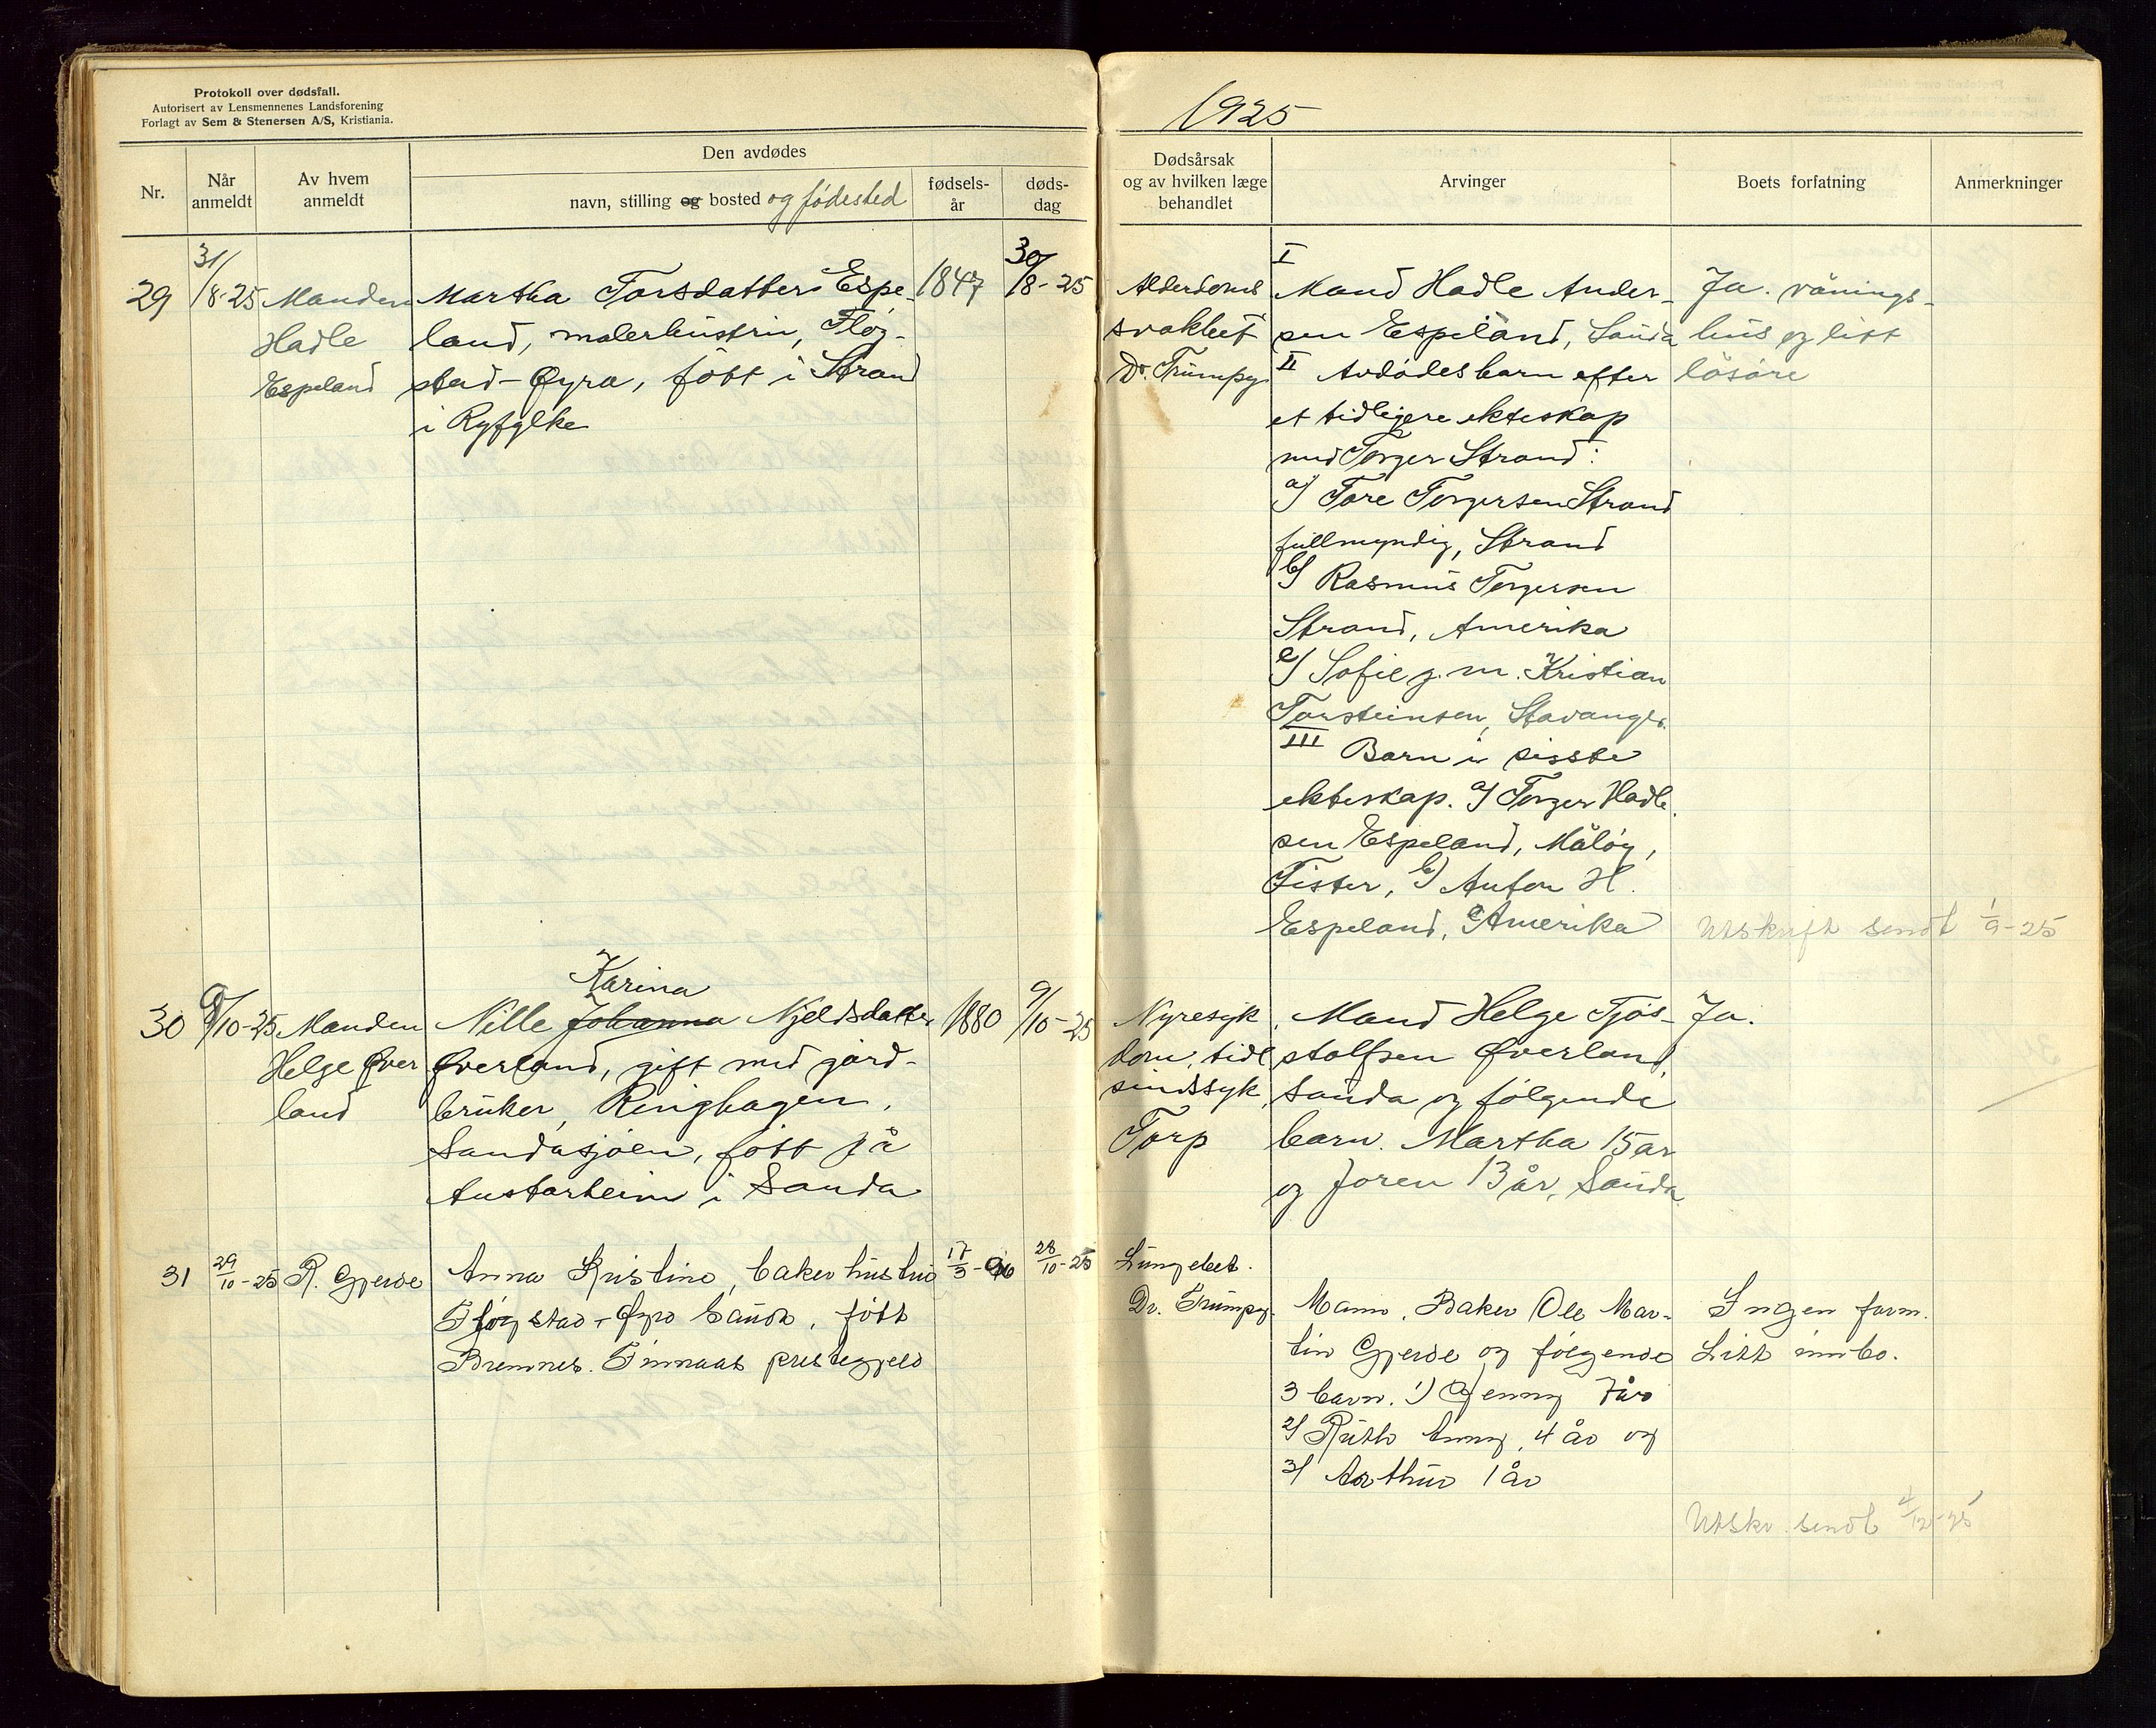 Protokoll over dødsfall.
Autorisert av Lensmennenes Landsforening
Forlagt av Sem & Stenersen A/S, Kristiania.
1925
Nr.
Når anmeldt
Av hvem anmeldt
Den avdødes
navn, stilling og bosted og fødested
fødsels-år
døds-dag
Dødsårsak
og av hvilken læge
behandlet
Arvinger
Boets forfatning
Anmerkninger
29
31/8-25
Manden
Hadle
Espeland
Martha Torsdatter Espe-
land, malerhustru, Fløg-
stad-Øyra, født i Strand
i Ryfylke
1847
30/8-25
Alderdoms
svakhet
Dr. Trumpy
I
Mand Hadle Ander-
sen Espeland, Sauda
II Avdødes barn efter
et tidligere ekteskap
med Torger Strand:
a) Tore Torgersen Strand
fullmyndig, Strand
b) Rasmus Torgersen
Strand, Amerika
c) Sofie g. m. Kristian
Torsteinsen, Stavanger.
III Barn i sisste
ekteskap. a) Torger Hadle-
sen Espeland, Måløy,
Fister, b) Anton H.
Espeland, Amerika
Ja. vånings-
hus og litt
løsøre
Utskrift sendt 1/9-25
30
9/10-25
Manden
Helge Øver
land
Karina
Nille Johanna Kjeldsdatter
Øverland, gift med gård-
bruker, Ringhagen,
Saudasjøen, født på
Austarheim i Sauda
1880
9/10-25
Nyresyk
dom, tidl
sindssyk,
Torp
Mand Helge Tjøs-
stolfsen Øverland,
Sauda og følgende
barn. Martha 15 år
og Joren 13 år, Sauda
Ja.
31
29/10-25
R. Gjerde
Anna Kristine, bakerhustru
Fløgstad-Øyra Sauda, født
Bremnes. Finnaas prestegjeld
17/3-96
28/10-25
Lungebet.
Dr. Trumpy.
Mann, Baker Ole Mar-
tin Gjerde og følgende
3 barn. 1) Jenny 7 år
2) Ruth Anny, 4 år og
3) Arthur 1 år
Ingen form.
Litt innbo.
Utskr. sendt 4/12-25